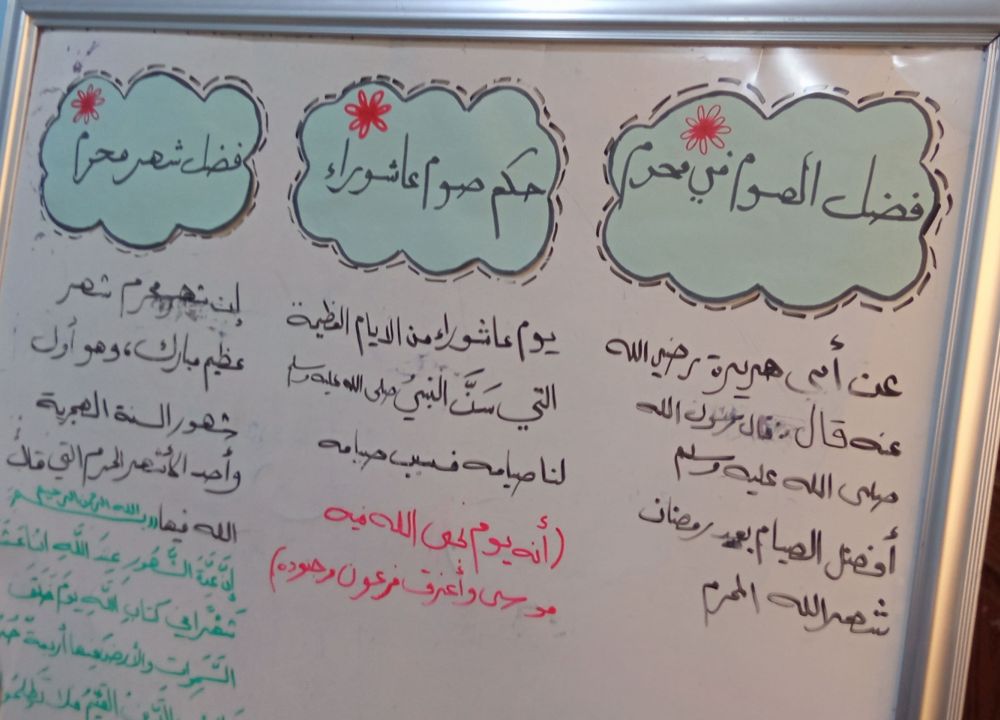 فضل الصوم في محرم
عن أبي هريرة رضي الله
عنه قال: قال رسول الله
صلى الله عليه وسلم
أفضل الصيام بعد رمضان
شهر الله المحرم
حكم صوم عاشوراء
يوم عاشوراء من الايام العظيمة
التي سَنَّ النبيُ صلى الله عليه وسلم
لنا صيامه فسبب صيامه
(أنه يوم نجى الله فيه
موسى وأغرق فرعون وجنوده)
فضل شهر محرم
إن شهر محرم شهر
عظيم مبارك، وهو أول
شهور السنة الهجرية
وأحد الأشهر الحرم التي قال
الله فيها، بسم الله الرحمن الرحيم
إِنَّ عِدَّةَ الشُّهُورِ عِندَ اللَّهِ اثْنَا عَشَ
شَهْرًا فِي كِتَابِ اللَّهِ يَوْمَ خَلَقَ
السَّمَوَاتِ وَالأَرْضَ مِنْهَا أَرْبَعَةٌ حُرُ
الدِّينُ الْقَيِّمُ فَلَا تَظْلِمُو